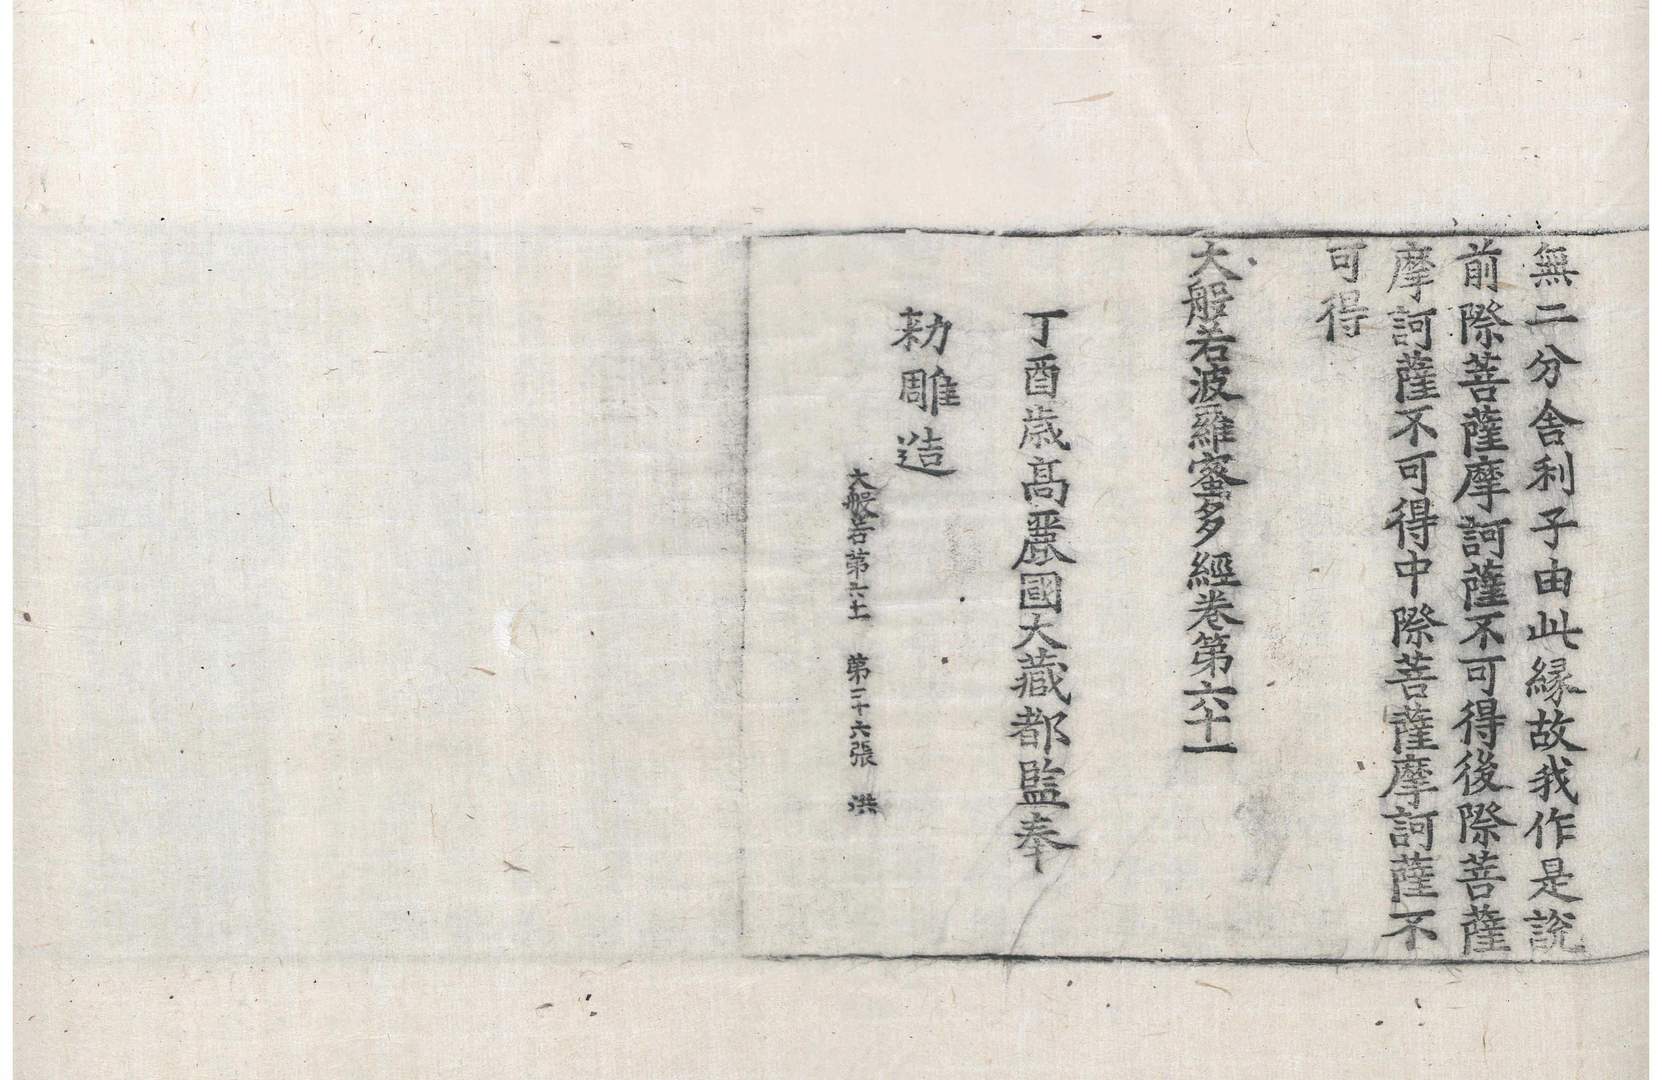 無二分舍利子由此縁故我作是說
前際菩薩摩訶薩不可得後際菩薩
摩訶薩不可得中際菩薩摩訶薩不
可得
大般若波羅蜜多經卷第六十一
丁酉歳高麗國大藏都監奉
勑雕造
大般若第六十一 第二十六張 洪